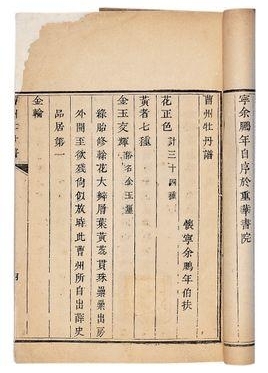 寧余鵬年自序於重華書院
曹州牡丹譜
懷寧余鵬年伯扶
花正色 計三十四種
黃者七種
金玉交輝 俗名金玉璽
綠胎修榦花大瓣層葉黃蕊貫珠纍纍出房
外開至欲殘尚似放時此曹州所自出薛史
品居第一
金輪